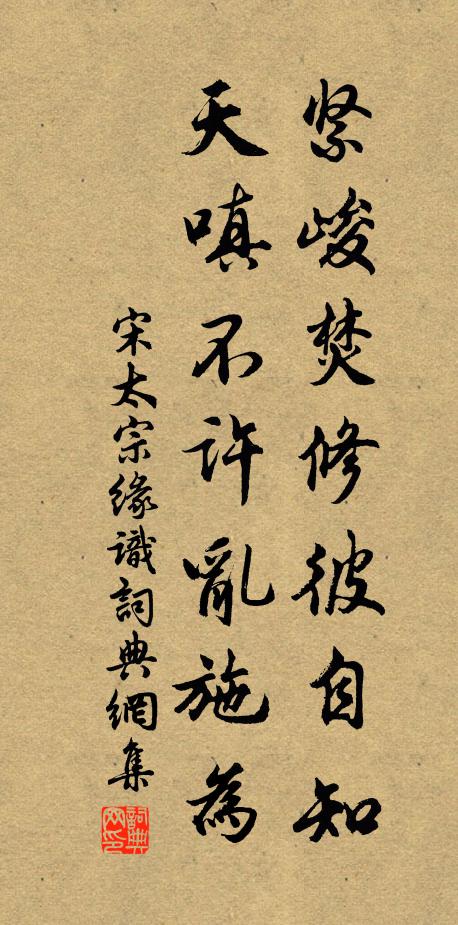 紧峻焚修彼自知
天嗔不許亂施為
宋太宗緣識詞典網集
詞典網印